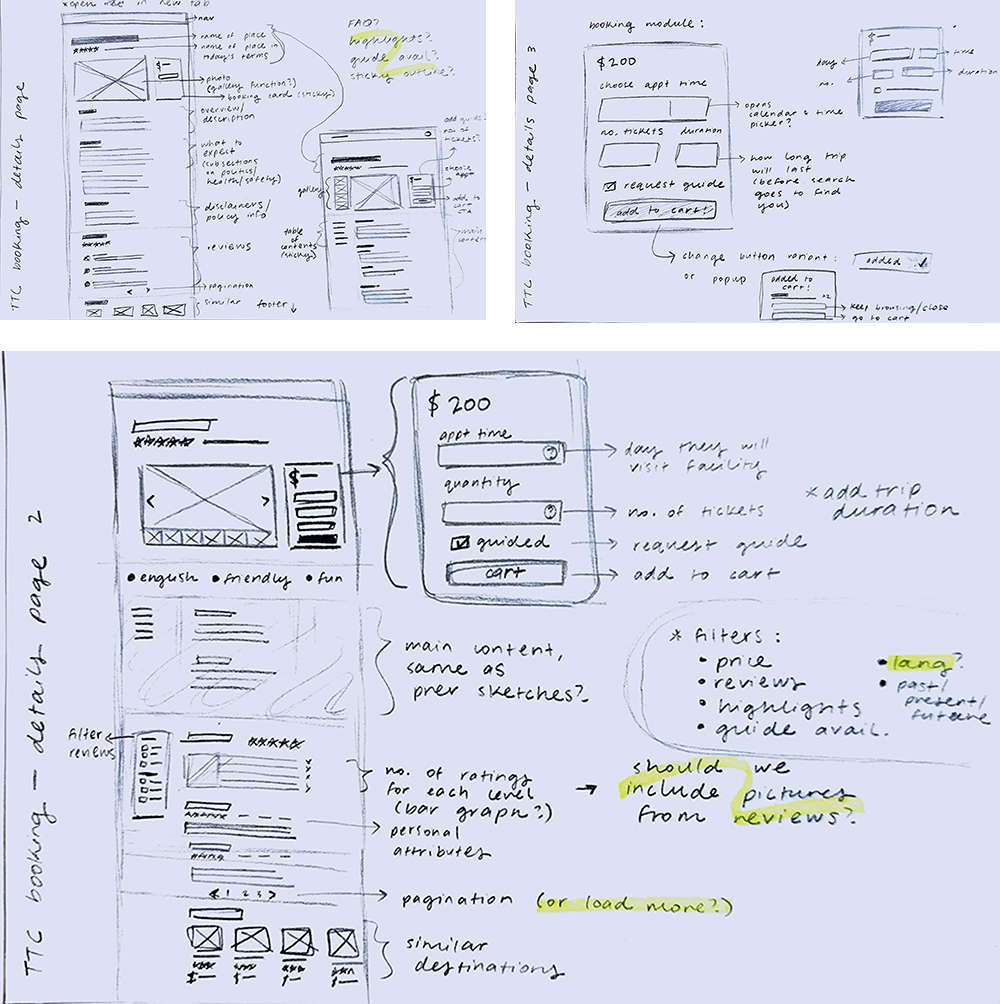 *open rec in new tab
TTC booking – details page
nav
name of place
name of place in
today's terms
photo
(gallery function?)
booking card (sticky)
overview/
description
what to
expect
(subsections
on politics/
health/safety)
disclaimers/
policy info
reviews
pagination
similar
footer ↓
$ —
FAQ?
highlights?
guide avail?
sticky outline?
add guide
no. of
tickets?
choose
appt
add to
cart
CTA
gallery
table of
contents
(sticky)
main
content
TTC booking – details page 3
booking module:
$200
choose appt time
opens
calendar & time
picker?
no. tickets
duration
how long trip
will last
(before search
goes to find
you)
request guide
add to cart!
change button variant:
added ✓
or popup
added to
cart!
x2
keep browsing/close
go to cart
$ —
day
time
no.
duration
TTC booking – details page 2
$ —
• english • friendly • fun
$ 200
appt time
?
day they will
visit facility
quantity
?
no. of tickets
* add trip
duration
guided
request guide
cart
add to cart
main content,
same as
prev sketches?
* filters:
• price
• reviews
• highlights
• guide avail.
• lang?
• past/
present/
future
filter
reviews
no. of ratings
for each level
(bar graph?)
→ should we
include pictures
from reviews?
personal
attributes
< 1 2 3 >
pagination (or load more?)
similar
destinations
$— $— $— $—